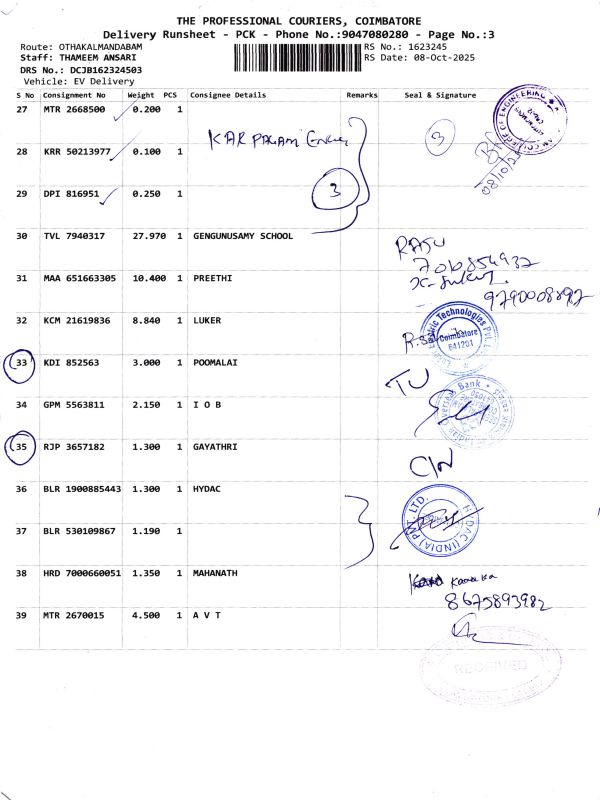 THE PROFESSIONAL COURIERS, COIMBATORE
Delivery Runsheet - PCK - Phone No.:9047080280 - Page No.:3
Route: OTHAKALMANDABAM RS No.: 1623245
Staff: THAMEEM ANSARI RS Date: 08-Oct-2025
DRS No.: DCJB162324503
Vehicle: EV Delivery
S No Consignment No Weight PCS Consignee Details Remarks Seal & Signature
27 MTR 2668500 0.200 1
KARPAGAM 3
28 KRR 50213977 0.100 1
08/10/25
29 DPI 816951 0.250 1 3
30 TVL 7940317 27.970 1 GENGUNUSAMY SCHOOL RAJU
31 MAA 651663305 10.400 1 PREETHI
9790008892
32 KCM 21619836 8.840 1 LUKER
Coimbatore
641201
33 KDI 852563 3.000 1 POOMALAI
34 GPM 5563811 2.150 1 I O B
35 RJP 3657182 1.300 1 GAYATHRI
36 BLR 1900885443 1.300 1 HYDAC
HYDAC (INDIA) PVT. LTD.
37 BLR 530109867 1.190 1
38 HRD 7000660051 1.350 1 MAHANATH
8675893982
39 MTR 2670015 4.500 1 A V T
RECEIVED